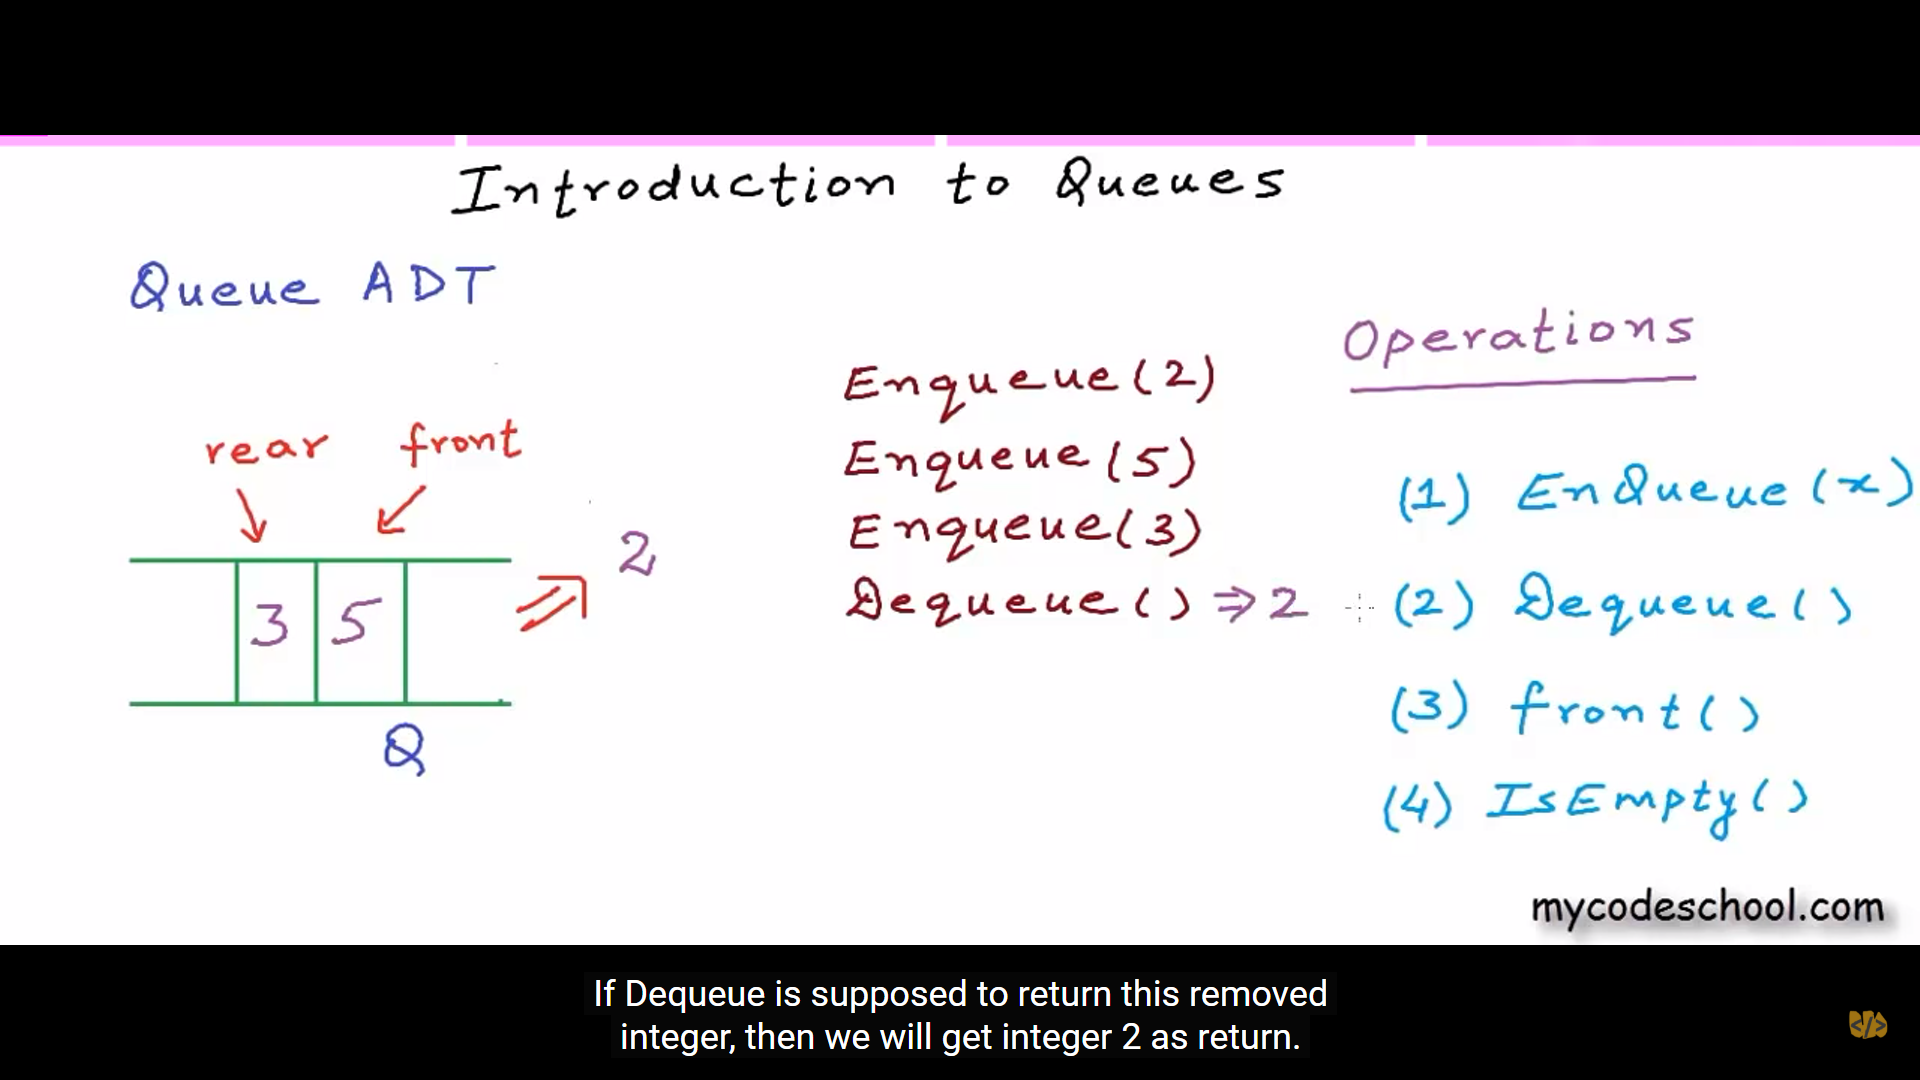 Introduction to Queues
Queue ADT
Operations
rear front
3 5
2
Q
Enqueue(2)
Enqueue(5)
Enqueue(3)
Dequeue() ⇒ 2
(1) EnQueue(x)
(2) Dequeue()
(3) front()
(4) IsEmpty()
mycodeschool.com
If Dequeue is supposed to return this removed
integer, then we will get integer 2 as return.